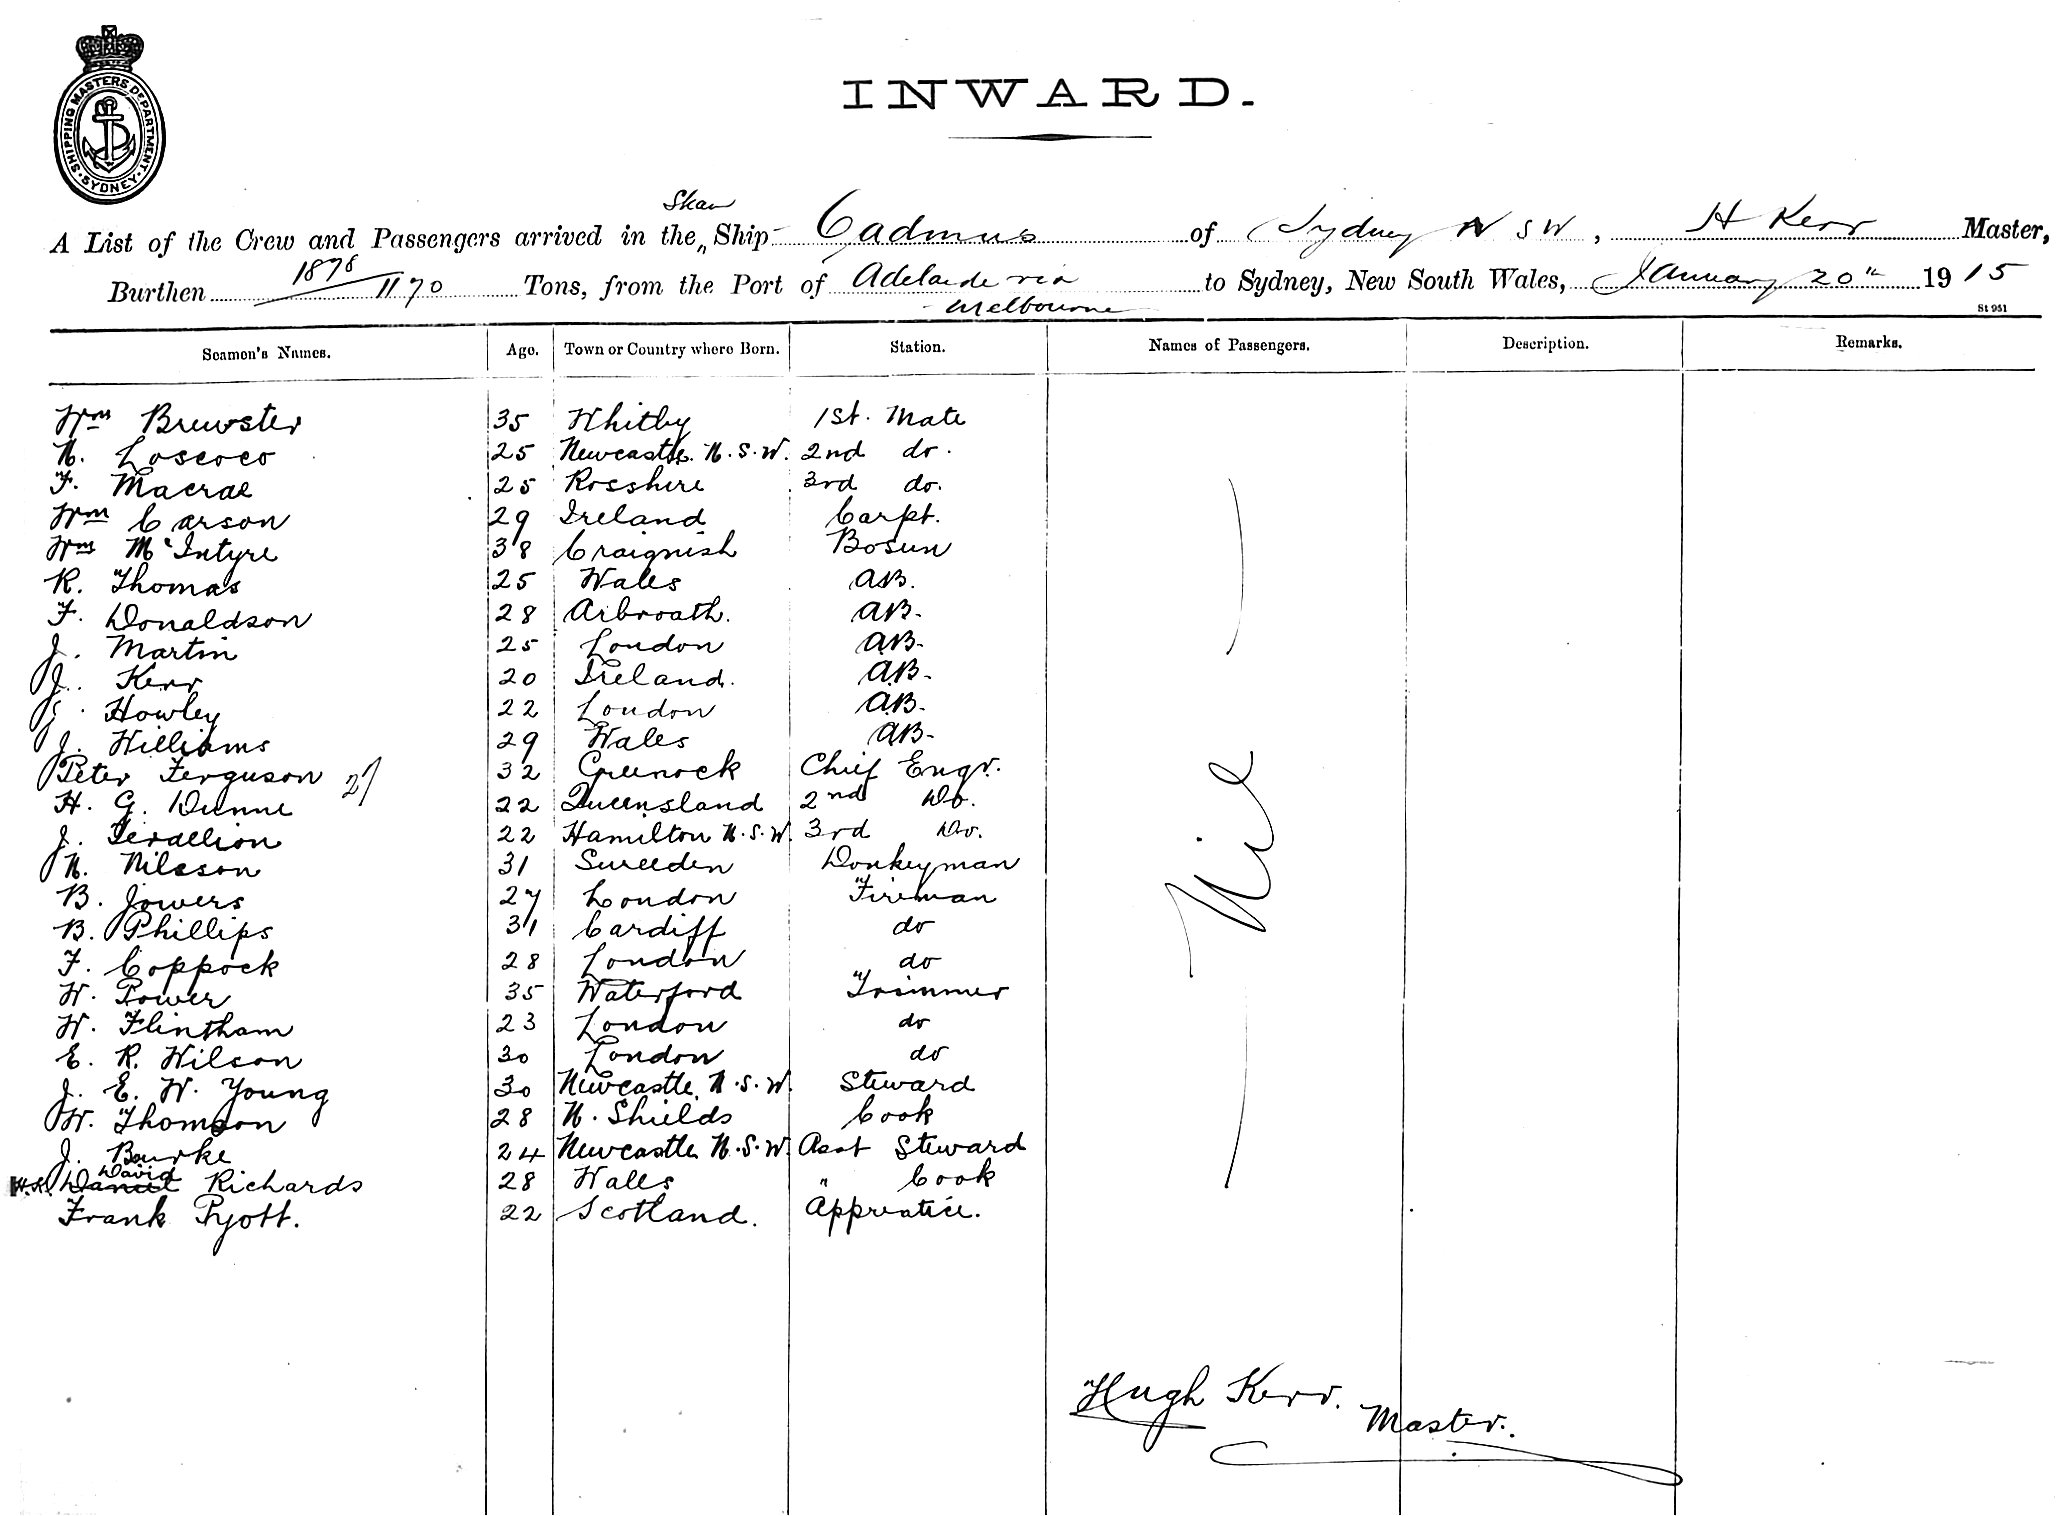 SHIPPING MASTERS DEPARTMENT · SYDNEY ·
INWARD.
Steam
A List of the Crew and Passengers arrived in the Ship Cadmus of Sydney N S W, H Kerr Master,
Burthen 1878 / 1170 Tons, from the Port of Adelaide via Melbourne to Sydney, New South Wales, January 20th 1915
St 951
Seamen's Names. Age. Town or Country where Born. Station. Names of Passengers. Description. Remarks.
Wm Brewster 35 Whitby 1st. Mate
N. Loscoco 25 Newcastle. N.S.W. 2nd do.
F. Macrae 25 Rosshire 3rd do.
Wm Carson 29 Ireland Carpt.
Wm McIntyre 38 Craignish Bosun
R. Thomas 25 Wales AB.
F. Donaldson 28 Arbroath. AB.
J. Martin 25 London AB.
J. Kerr 20 Ireland. AB.
J. Howley 22 London AB.
J. Williams 29 Wales AB.
Peter Ferguson 27 32 Greenock Chief Engr.
H. G. Dunne 22 Queensland 2nd Do.
J. 22 Hamilton N.S.W. 3rd Do.
N. Nilsson 31 Sweeden Donkeyman
B. Jowers 27 London Fireman
B. Phillips 31 Cardiff do
F. Coppock 28 London do
W. Power 35 Waterford Trimmer
W. Flintham 23 London do
E. R. Wilson 30 London do
J. E. W. Young 30 Newcastle. N.S.W. Steward
W. Thomson 28 N. Shields Cook
J. Bourke 24 Newcastle N.S.W. Asst Steward
H.K. Daniel David Richards 28 Wales " Cook
Frank Pyott. 22 Scotland. Apprentice.
Nil
Hugh Kerr. Master.